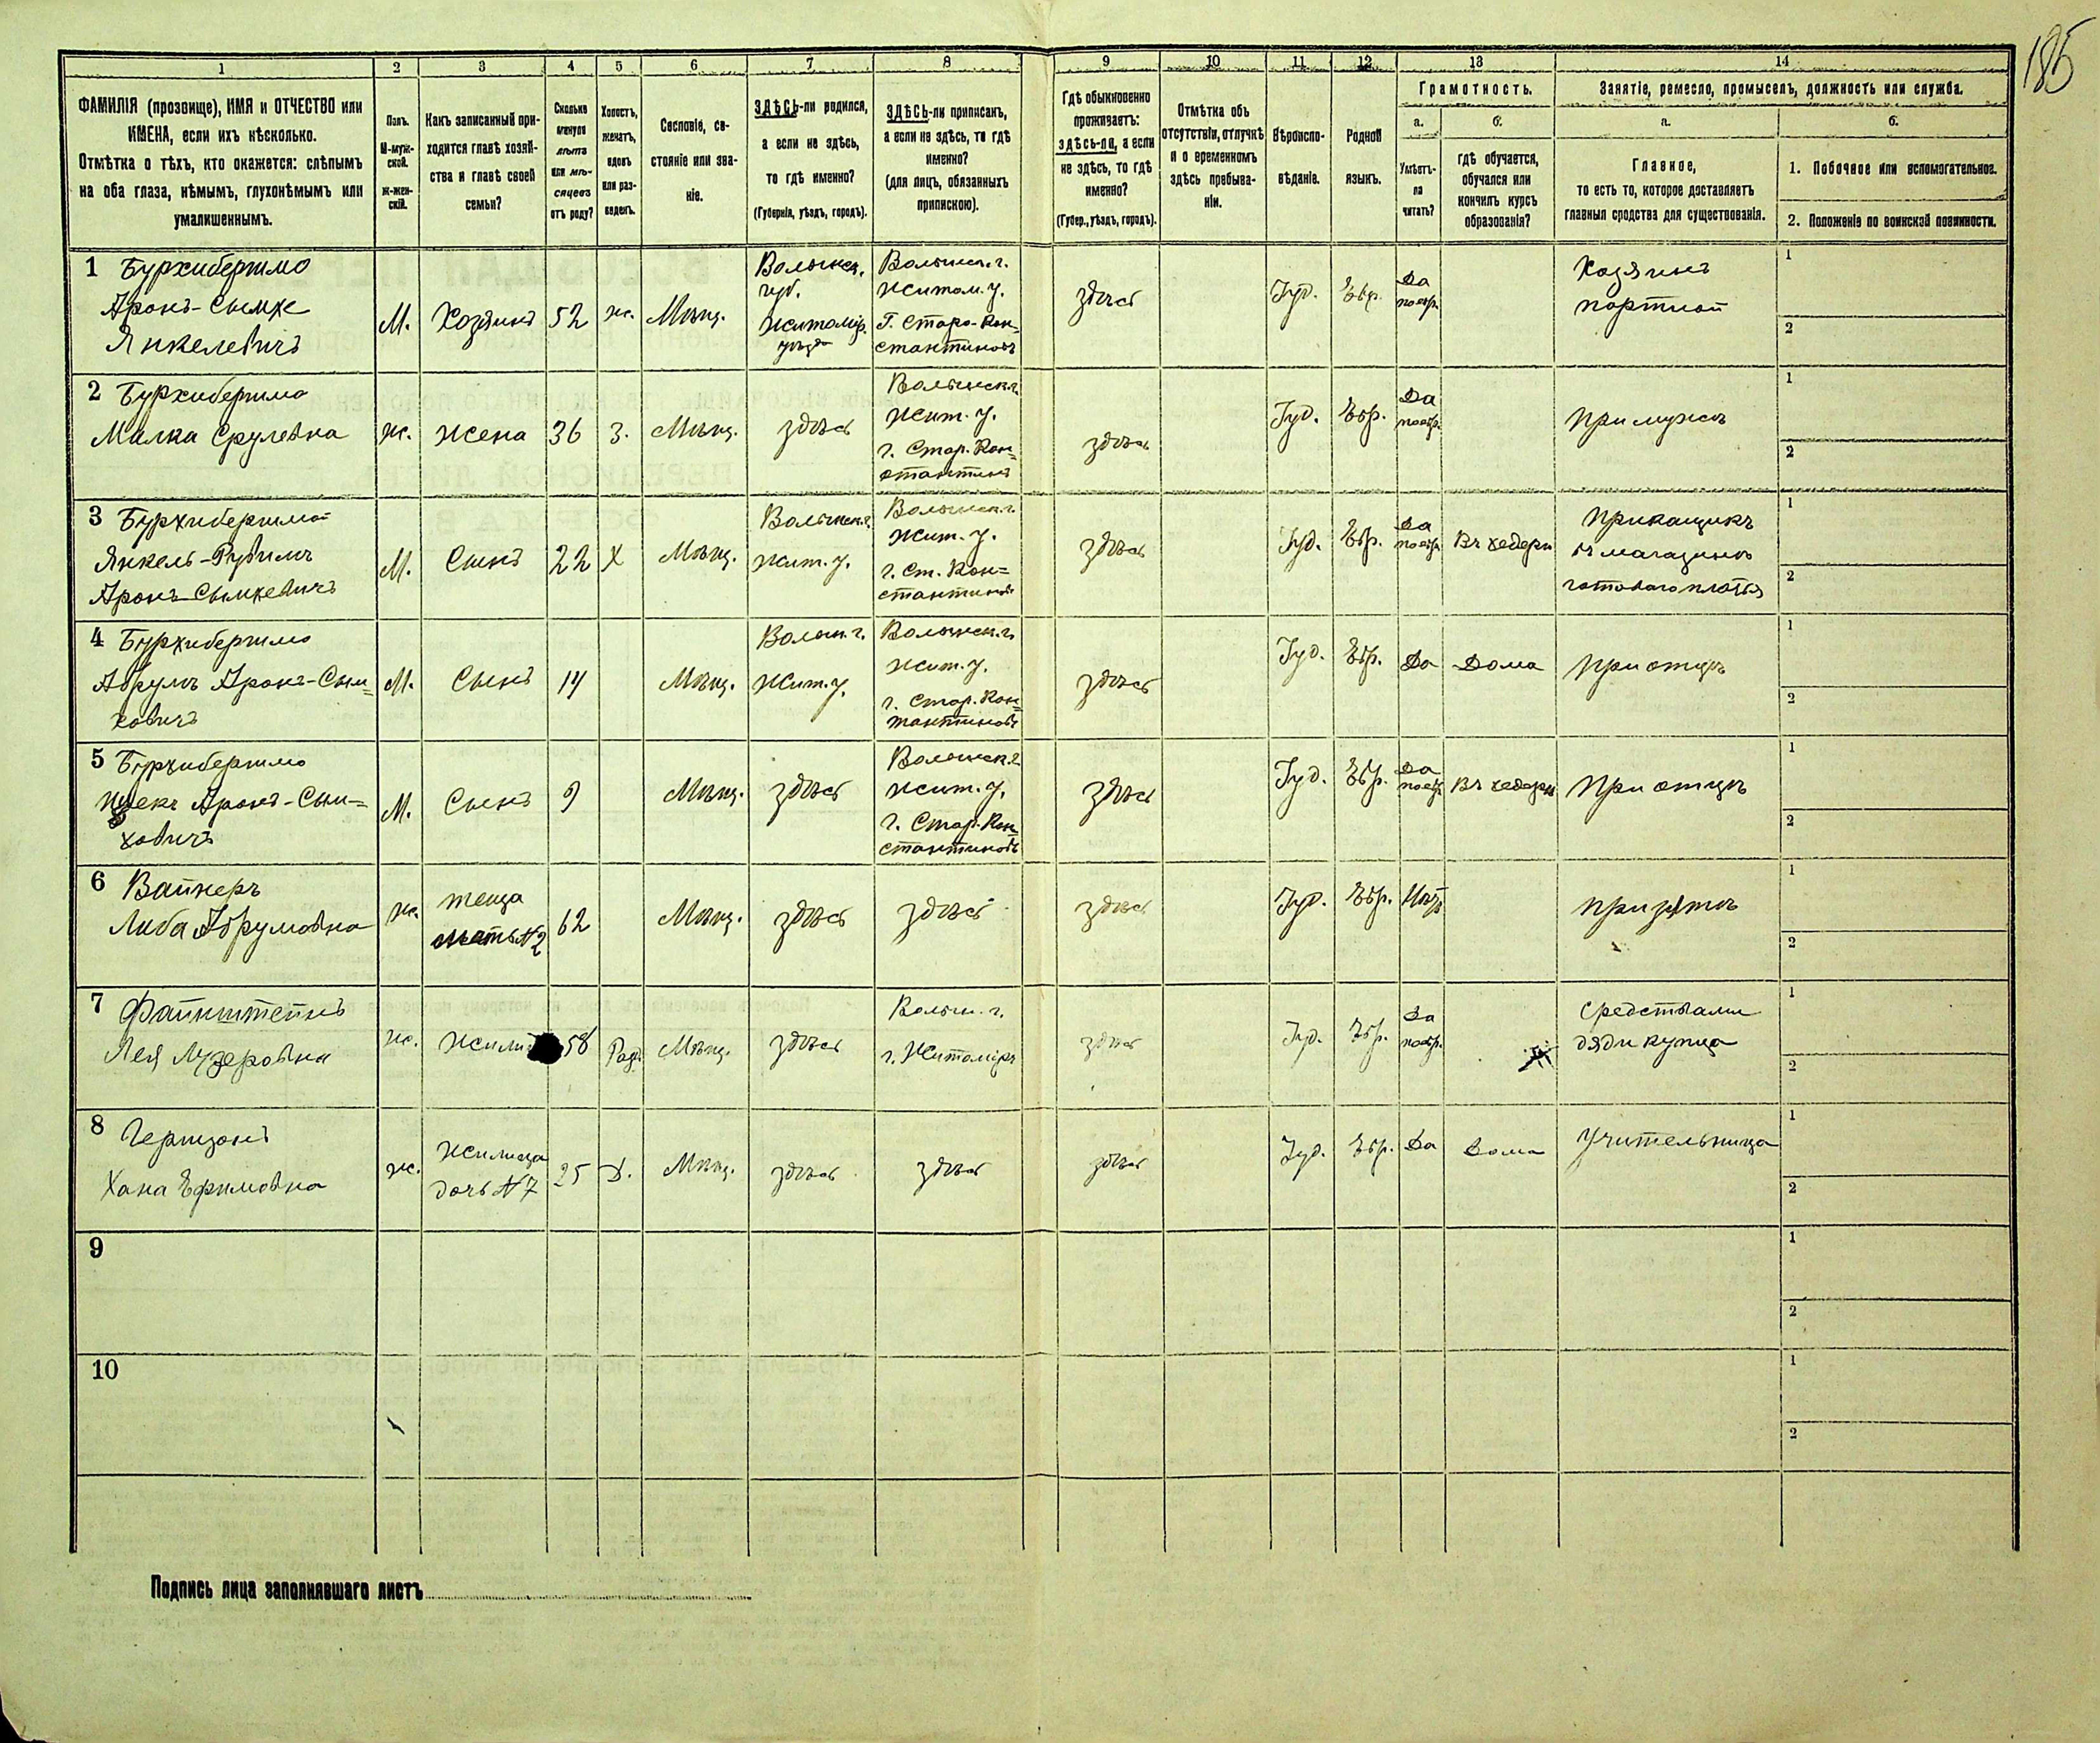 185
1 2 3 4 5 6 7 8 9 10 11 12 13 14
ФАМИЛІЯ (прозвище), ИМЯ и ОТЧЕСТВО или
ИМЕНА, если ихъ нѣсколько.
Отмѣтка о тѣхъ, кто окажется: слѣпымъ
на оба глаза, нѣмымъ, глухонѣмымъ или
умалишеннымъ.
Полъ.
М-муж-
ской.
ж-жен-
скій.
Какъ записанный при-
ходится главѣ хозяй-
ства и главѣ своей
семьи?
Сколько
минуло
лѣтъ
или мѣ-
сяцевъ
отъ роду?
Холостъ,
женатъ,
вдовъ
или раз-
веденъ.
Сословіе, со-
стояніе или зва-
ніе.
ЗДѢСЬ-ли родился,
а если не здѣсь,
то гдѣ именно?
(Губернія, уѣздъ, городъ).
ЗДѢСЬ-ли приписанъ,
а если не здѣсь, то гдѣ
именно?
(для лицъ, обязанныхъ
припискою).
Гдѣ обыкновенно
проживаетъ:
здѣсь-ли, а если
не здѣсь, то гдѣ
именно?
(Губер., уѣздъ, городъ).
Отмѣтка объ
отсутствіи, отлучкѣ
и о временномъ
здѣсь пребыва-
ніи.
Вѣроиспо-
вѣданіе.
Родной
языкъ.
Грамотность.
а.
Умѣетъ-
ли
читать?
б.
гдѣ обучается,
обучался или
кончилъ курсъ
образованія?
Занятіе, ремесло, промыселъ, должность или служба.
а.
Главное,
то есть то, которое доставляетъ
главныя средства для существованія.
б.
1. Побочное или вспомогательное.
2. Положеніе по воинской повинности.
1 Бурхибергимо
Аронъ-Сымхе
Янкелевичъ
М.
Хозяинъ
52
ж.
Мѣщ.
Волынск.
губ.
Житомір.
уѣзда
Волынск. г.
Житом. у.
Г. Старо-Кон=
стантиновъ
здѣсь
Іуд.
Евр.
Да
по евр.
Хозяинъ
портной
1
2
2 Бурхибергимо
Малка Срулевна
ж.
Жена
36
З.
Мѣщ.
здѣсь
Волынск. г.
Жит. у.
г. Стар. Кон=
стантин
здѣсь
Іуд.
Евр.
Да
по евр.
При мужѣ
1
2
3 Бурхибергимо
Янкель-Рувимъ
Аронъ-Сымхевичъ
М.
Сынъ
22
Х
Мѣщ.
Волынск. г.
Жит. у.
Волынск. г.
Жит. у.
г. Ст. Кон=
стантинов
здѣсь
Іуд.
Евр.
Да
по евр.
Въ хедерѣ
Прикащикъ
въ магазинѣ
готоваго платья
1
2
4 Бурхибергимо
Абрумъ Аронъ-Сым=
ховичъ
М.
Сынъ
14
Мѣщ.
Волын. г.
Жит. у.
Волынск. г.
Жит. у.
г. Стар. Кон=
тантиновъ
здѣсь
Іуд.
Евр.
Да
Дома
При отцѣ
1
2
5 Бурхибергимо
Аронъ-Сым=
ховичъ
М.
Сынъ
9
Мѣщ.
здѣсь
Волынск. г.
Жит. у.
г. Стар. Кон=
стантиновъ
здѣсь
Іуд.
Евр.
Да
по евр.
Въ хедерѣ
При отцѣ
1
2
6 Вайнеръ
Либа Абрумовна
ж.
теща
мать N2
62
Мѣщ.
здѣсь
здѣсь
здѣсь
Іуд.
Евр.
Нѣтъ
При зятѣ
1
2
7 Файнштейнъ
Лея Лузеровна
ж.
Жили
58
Мѣщ.
здѣсь
Волын. г.
г. Житоміръ
здѣсь
Іуд.
Евр.
Да
по евр.
Средствами
дяди купца
1
2
8 Гершзонъ
Хана Ефимовна
ж.
Жилица
дочь N7
25
Д.
Мѣщ.
здѣсь
здѣсь
здѣсь
Іуд.
Евр.
Да
Дома
Учительница
1
2
9
1
2
10
1
2
Подпись лица заполнявшаго листъ